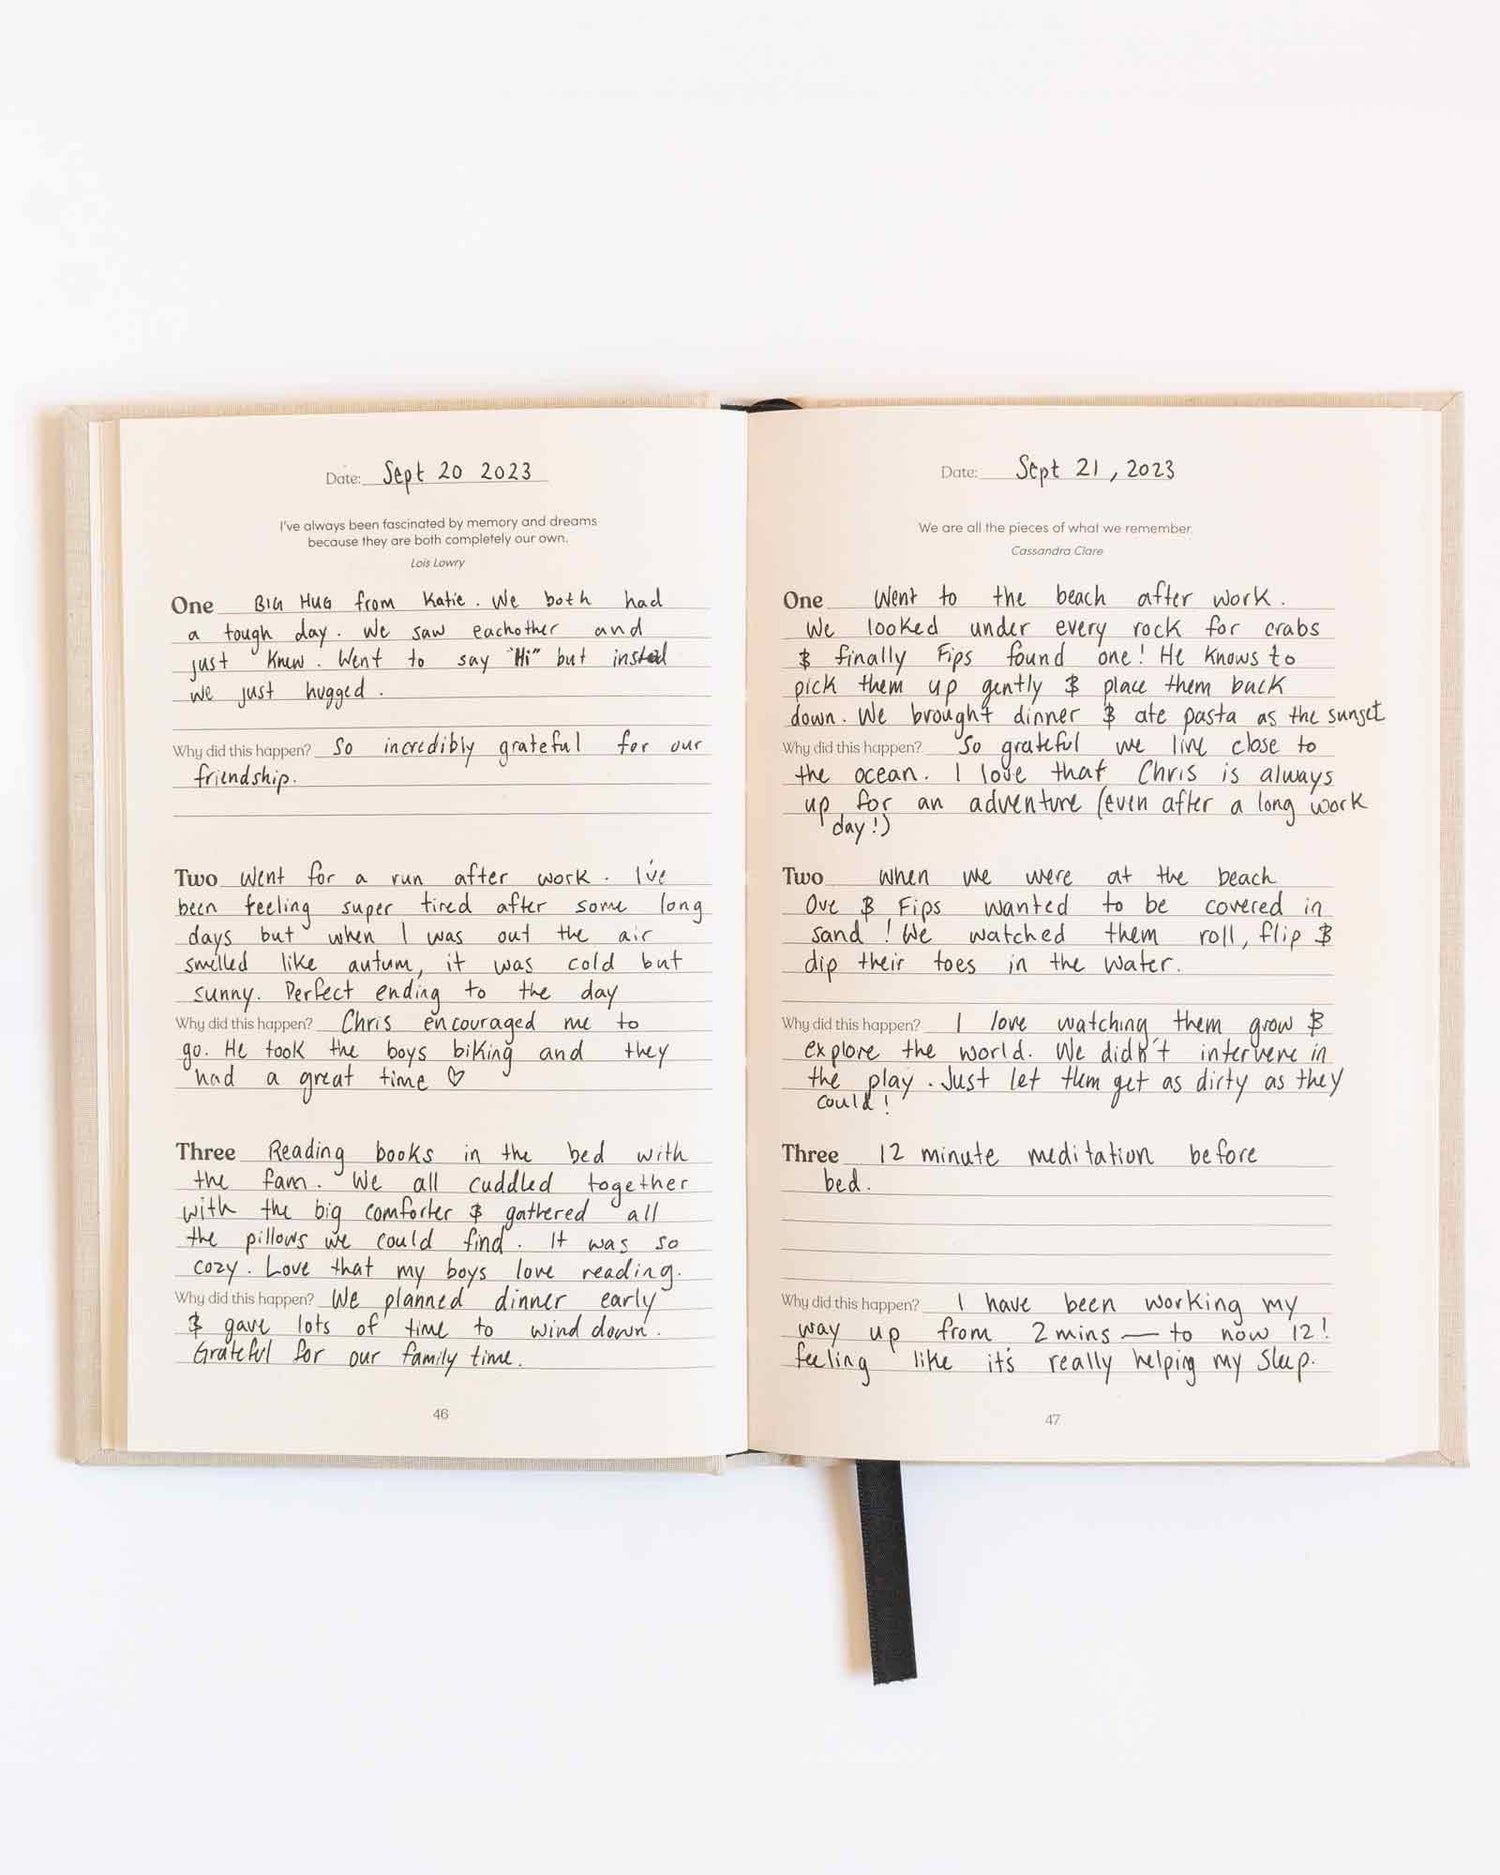 Date: Sept 20 2023
I've always been fascinated by memory and dreams
because they are both completely our own.
Lois Lowry
One BIG HUG from Katie. We both had
a tough day. We saw eachother and
just knew. Went to say "Hi" but instead
we just hugged.
Why did this happen? So incredibly grateful for our
friendship.
Two Went for a run after work. I've
been feeling super tired after some long
days but when I was out the air
smelled like autum, it was cold but
sunny. Perfect ending to the day
Why did this happen? Chris encouraged me to
go. He took the boys biking and they
had a great time ♡
Three Reading books in the bed with
the fam. We all cuddled together
with the big comforter & gathered all
the pillows we could find. It was so
cozy. Love that my boys love reading.
Why did this happen? We planned dinner early
& gave lots of time to wind down.
Grateful for our family time.
46
Date: Sept 21, 2023
We are all the pieces of what we remember.
Cassandra Clare
One Went to the beach after work.
We looked under every rock for crabs
& finally Fips found one! He knows to
pick them up gently & place them back
down. We brought dinner & ate pasta as the sunset
Why did this happen? So grateful we live close to
the ocean. I love that Chris is always
up for an adventure (even after a long work
day!)
Two When we were at the beach
Ove & Fips wanted to be covered in
sand! We watched them roll, flip &
dip their toes in the water.
Why did this happen? I love watching them grow &
explore the world. We didn't intervene in
the play. Just let them get as dirty as they
could!
Three 12 minute meditation before
bed.
Why did this happen? I have been working my
way up from 2 mins — to now 12!
feeling like it's really helping my sleep.
47